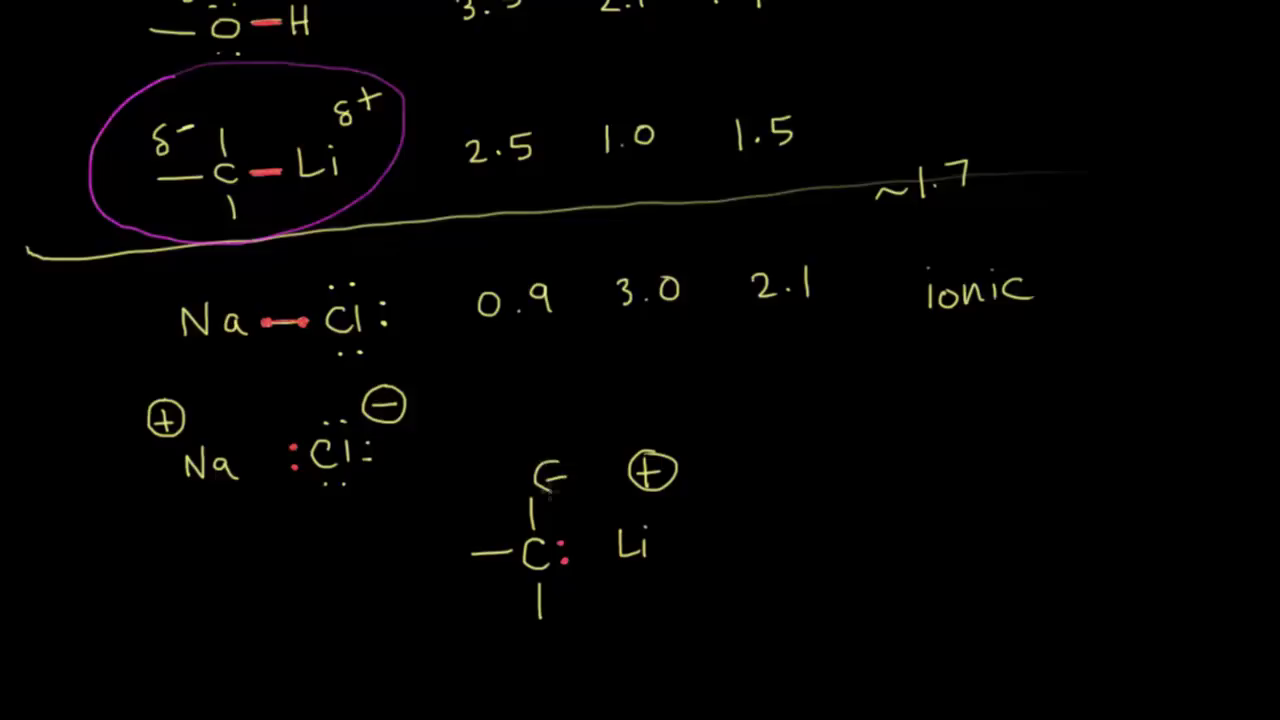 — O — H
δ− δ+
— C — Li 2.5 1.0 1.5
~1.7
Na — Cl 0.9 3.0 2.1 ionic
+ −
Na :Cl:
+
— C: Li